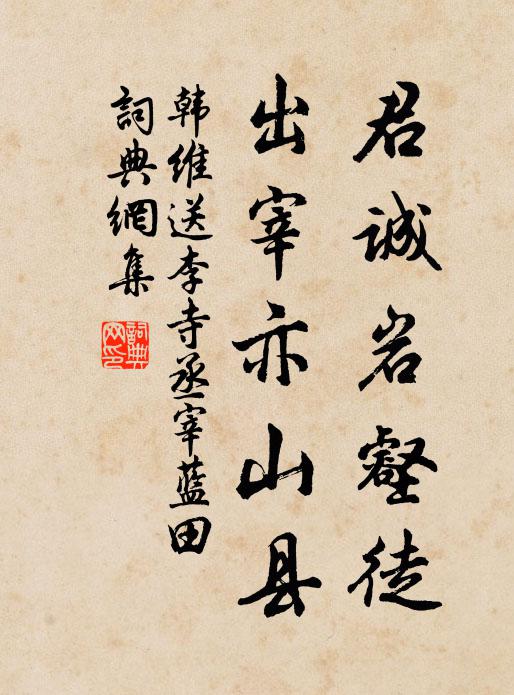 君诚岩壑徒
出宰亦山县
韩维送李寺丞宰蓝田
詞典網集
詞典網印